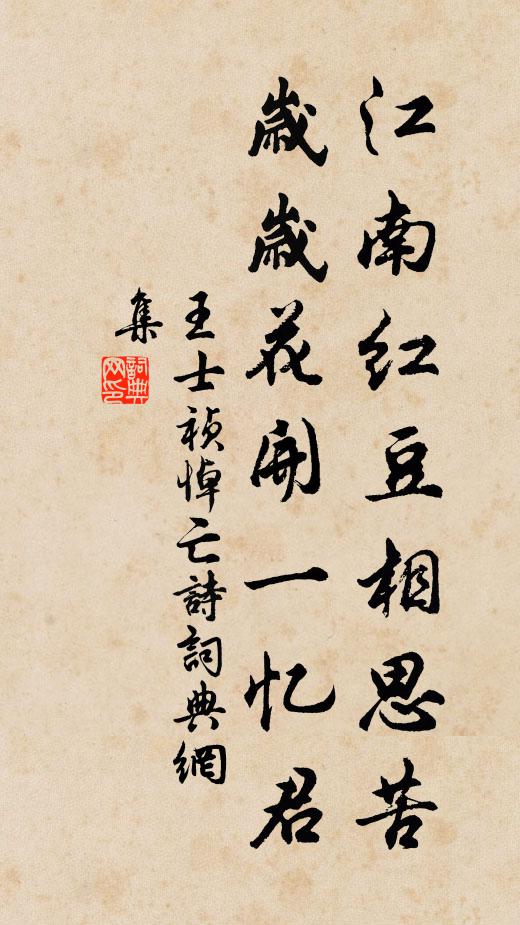 江南红豆相思苦
歲歲花開一忆君
王士禎悼亡詩詞典網
集
詞典网印